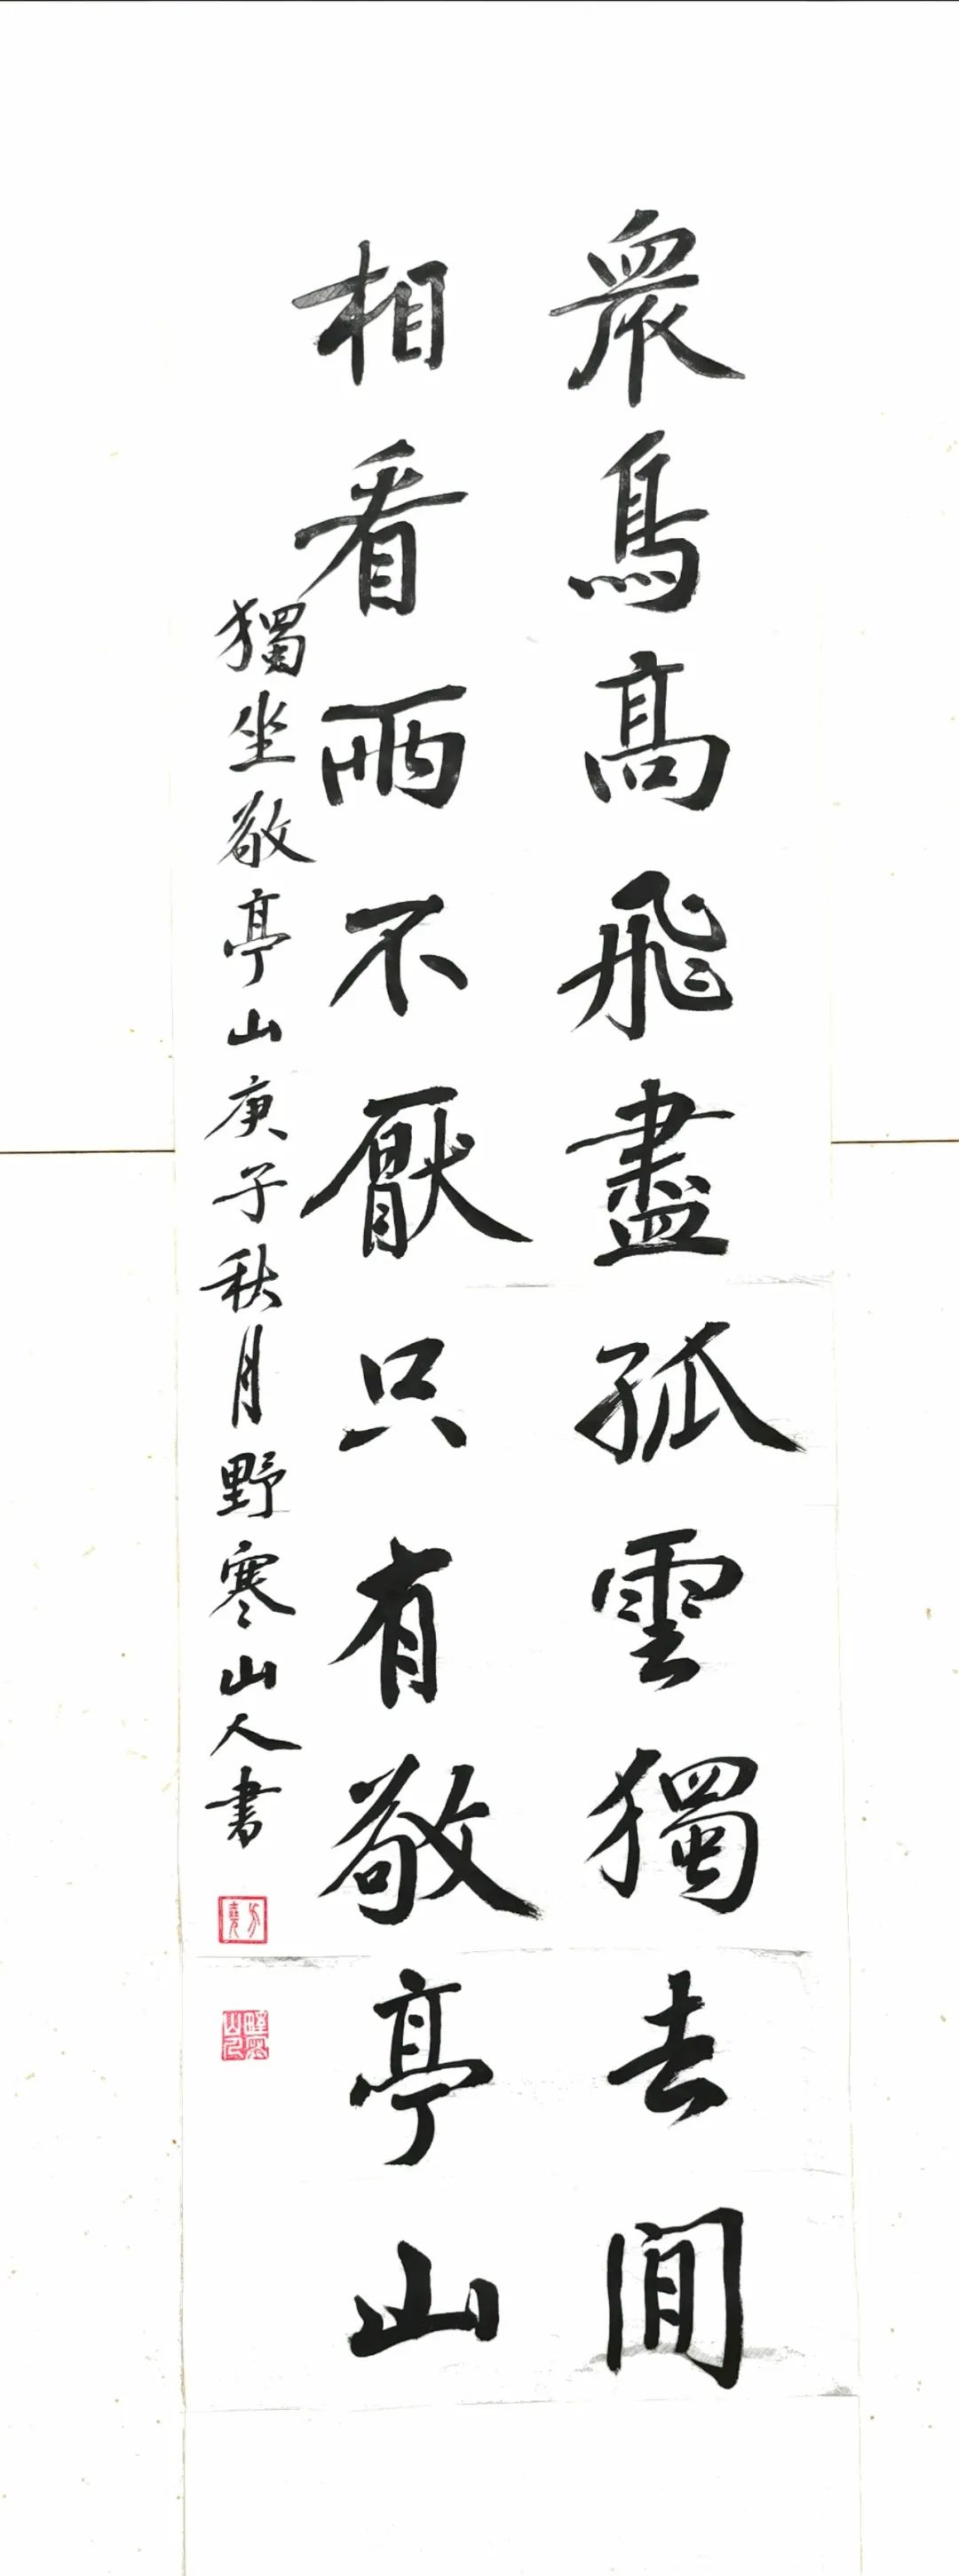 眾鳥高飛盡孤雲獨去閒
相看兩不厭只有敬亭山
獨坐敬亭山庚子秋月野寒山人書